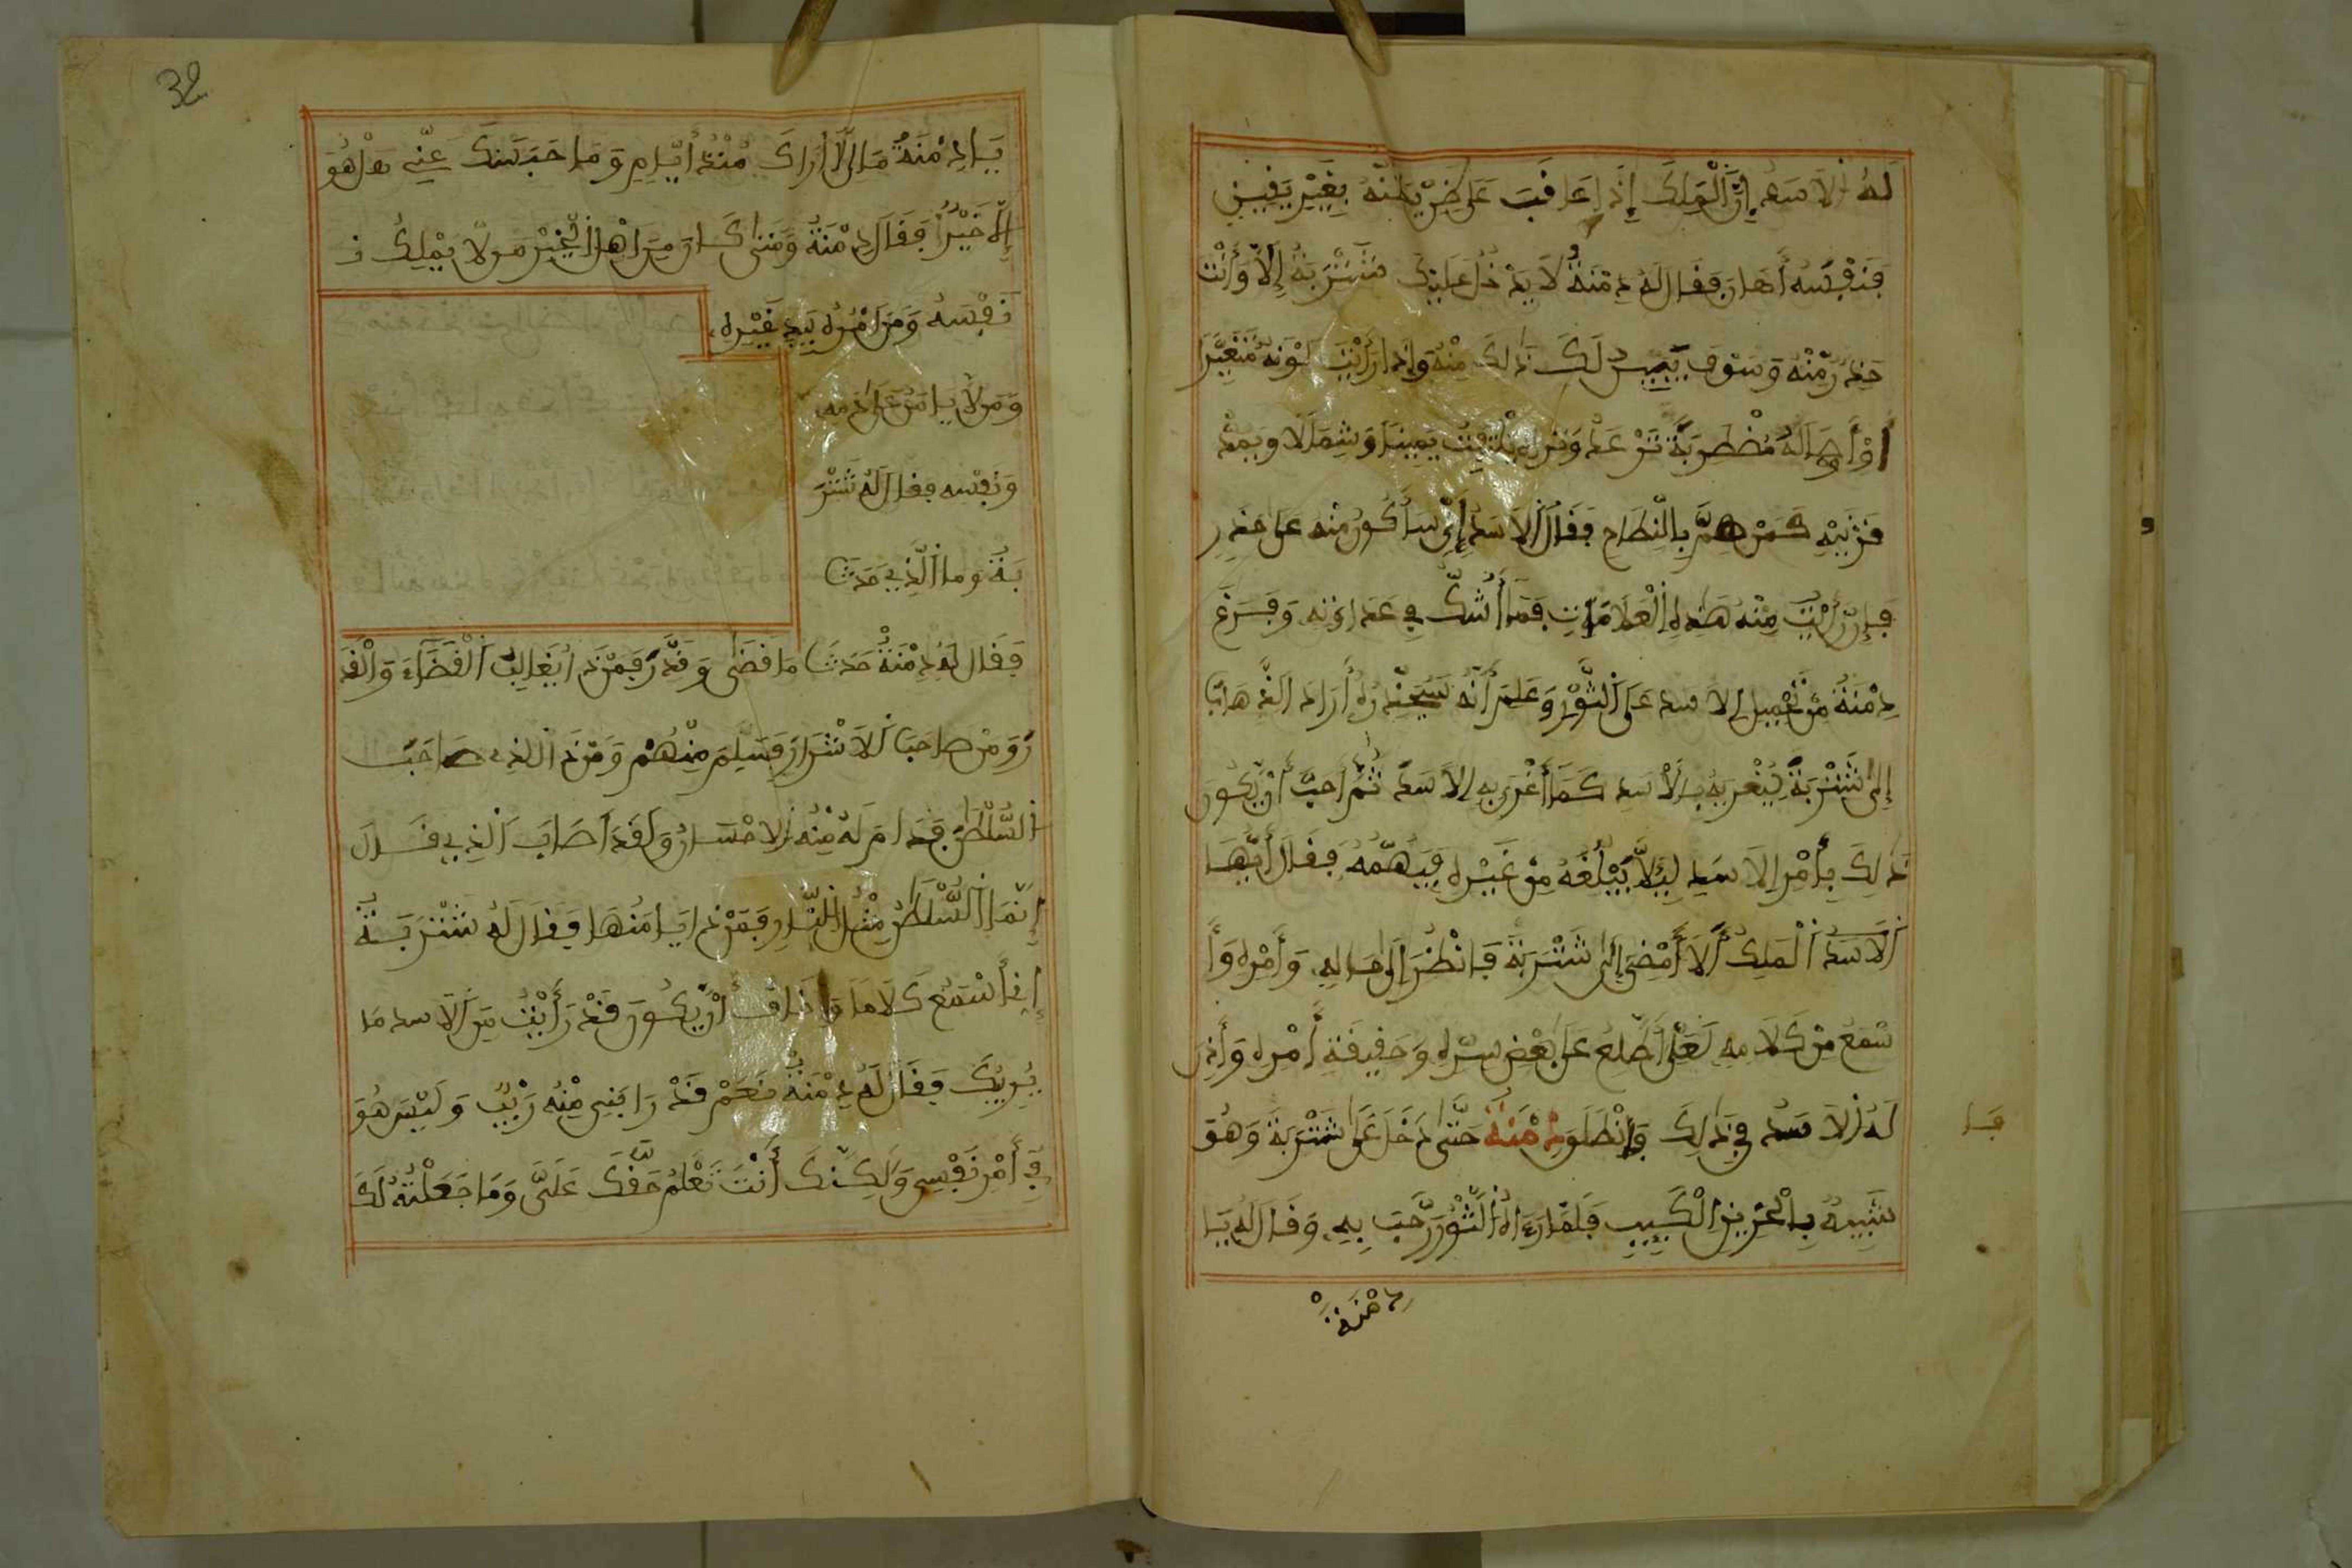 لَهُ الاَسَدُ إِنَّ الْمَلِكَ إِذَا عَاقَبَ عَلَى ظَنْ يَظُنُّهُ بِغَيْرِ يَقِينٍ
فَنَفْسَهُ أَهَانَ فَقَالَ لَهُ دِمْنَةُ لاَ يَدْخُلُ عَلَيْكَ شَنْزَبَةُ إِلاَّ وَأَنْتَ
حَذِرٌ مِّنْهُ وَسَوْفَ يَتَبَيَّنُ لَكَ ذَلِكَ مِنْهُ وَإِذَا رَأَيْتَ لَوْنَهُ مُتَغَيِّرًا
أَوْ أَوْصَالَهُ مُضْطَرِبَةً تَرْعَدُ وَتَرَاهُ يَلْتَفِتُ يَمِينًا وَشِمَالًا وَيَمُدُّ
قَرْنَيْهِ كَمَنْ هَمَّ بِالنِّطَاحِ فَقَالَ الاَسَدُ إِنِّي سَأَكُونُ مِنْهُ عَلَى حَذَرٍ
فَإِنْ رَأَيْتُ مِنْهُ هَذِهِ الْعَلَامَاتِ فَمَا أَشُكُّ فِي عَدَاوَتِهِ وَفَرَغَ
دِمْنَةُ مِنْ تَحْمِيلِ الاسد عَلَى الثَّوْرِ وَعَلِمَ أَنَّهُ سَيَحْذَرُهُ أَرَادَ الذَّهَابَ
إِلَى شَنْزَبَةَ لِيُغْرِيَهُ بِالأَسَدِ كَمَا أَغْرَى بِهِ الاَسَدَ ثُمَّ أَحَبَّ أَنْ يَّكُونَ
ذَلِكَ بِأَمْرِ الاَسَدِ لِيَلاَّ يَبْلُغَهُ مِنْ غَيْرِهِ فَيَتَّهِمَهُ فَقَالَ أَيُّهَا
الاَسَدُ الْمَلِكُ أَلاَ أَمْضِي إِلَى شَنْزَبَةَ فَانْظُرَ إِلَى حَالِهِ وَأَمْرِهِ وَأَ
سْمَعُ مِنْ كَلَامِهِ لَعَلِّي أَطَّلِعُ عَلَى بَعْضِ سِرِّهِ وَحَقِيقَةِ أَمْرِهِ وَأَذِنَ
لَهُ الاَسَدُ فِي ذَلِكَ وَانْطَلَقَ دِمْنَةُ حَتَّى دَخَلَ عَلَى شَنْزَبَةَ وَهُوَ
شَبِيهٌ بِالْحَزِينِ الْكَئِيبِ فَلَمَّا رَءَاهُ الثَّوْرُ رَحَّبَ بِهِ وَقَالَ لَهُ يَا
دِمْنَةُ
32
يَا دِمْنَةُ مَا لِي لَا أَرَاكَ مُنْذُ أَيَّامٍ وَمَا حَبَسَكَ عَنِّي هَلْ هُوَ
إِلاَّ خَيْرٌ فَقَالَ دِمْنَةُ وَمَتَى كَانَ مِنَ اهْلِ الْخَيْرِ مَن لاَّ يَمْلِكُ نـ
نَفْسَهُ وَمَنَ امْرُهُ بِيَدِ غَيْرِهِ
وَمَن لاَّ يَامَنُ عَلَى دَمِهِ
وَنَفْسِهِ فقال لَهُ شَنْزَ
بَةُ وما الَّذِي حَدَثَ
فَقَالَ لَهُ دِمْنَةُ حَدَثَ مَا قَضَى وَقَدَّرَ فَمَنْ ذَا يُغَالِبُ الْقَضَاءَ وَالْقَدَ
رَ وَمَنْ صَاحَبَ الاَشْرَارَ فَسَلِمَ مِنْهُمْ وَمَنْ ذَا الذِي صَاحَبَ
السُّلْطَنَ فَدَامَ لَهُ مِنْهُ الاِحْسَانُ وَلَقَدَ اَصَابَ الذِي قَالَ
إِنَّمَا السُّلْطَنُ مِثْلُ النَّارِ فَمَنْ ذَا يَامَنُهَا فَقَالَ لَهُ شَنْزَبَةُ
إِنِّي أَسْمَعُ كَلَامًا وَأَخَافُ أَنْ يَّكُونَ قَدْ رَأَيْتُ مِنَ الاسد مَا
يُرِيبُكَ فَقَالَ لَهُ دِمْنَةُ نَعَمْ قَدْ رَابَنِي مِنْهُ رَيْبٌ وَلَيْسَ هُوَ
فِي أَمْرِ نَفْسِي وَلَكِنَّكَ أَنْتَ تَعْلَمُ حَقَّكَ عَلَيَّ وَمَا جَعَلْتُهُ لَكَ